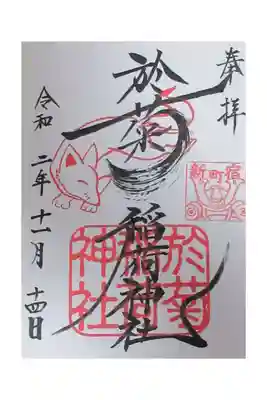 奉拝
新町宿
於菊稲荷神社
於菊稲荷神社
令和二年十一月十四日